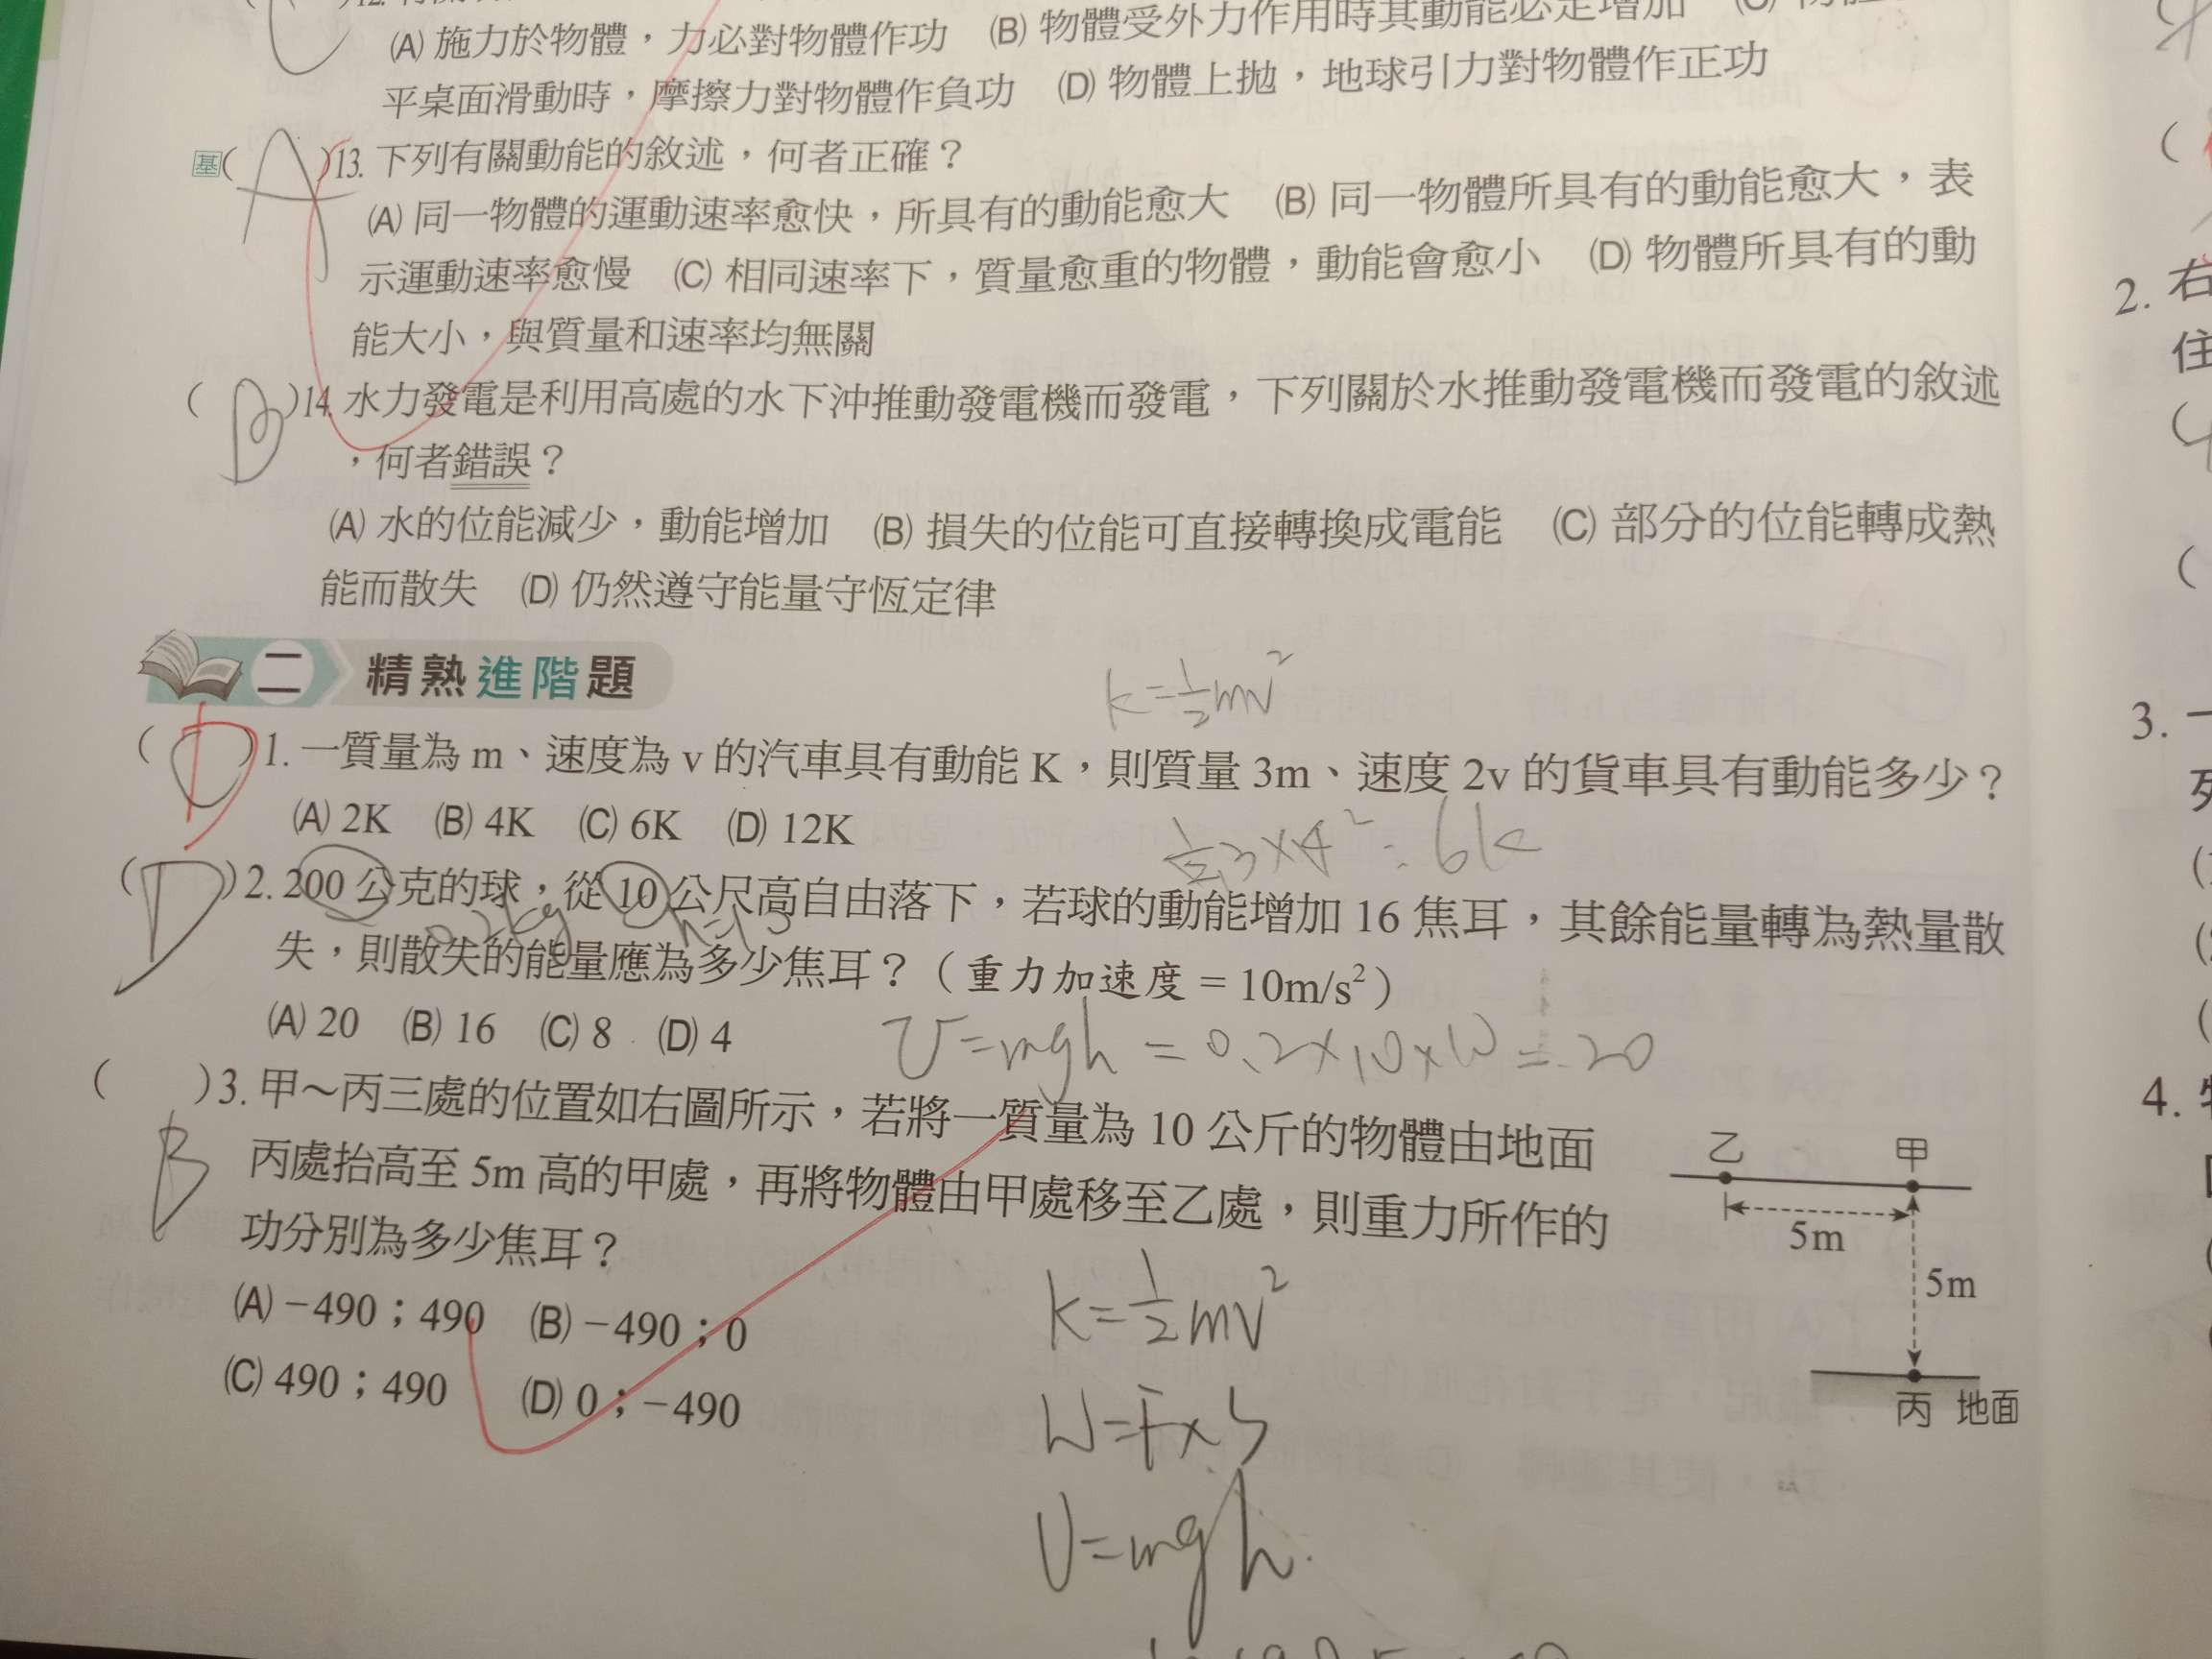 (A) 施力於物體，力必對物體作功 (B) 物體受外力作用時其動能必定增加 (C) 物體
平桌面滑動時，摩擦力對物體作負功 (D) 物體上拋，地球引力對物體作正功
基( A )13. 下列有關動能的敘述，何者正確？
(A) 同一物體的運動速率愈快，所具有的動能愈大 (B) 同一物體所具有的動能愈大，表
示運動速率愈慢 (C) 相同速率下，質量愈重的物體，動能會愈小 (D) 物體所具有的動
能大小，與質量和速率均無關
( B )14. 水力發電是利用高處的水下沖推動發電機而發電，下列關於水推動發電機而發電的敘述
，何者錯誤？
(A) 水的位能減少，動能增加 (B) 損失的位能可直接轉換成電能 (C) 部分的位能轉成熱
能而散失 (D) 仍然遵守能量守恆定律
二 精熟進階題
k=½mv²
( D )1. 一質量為 m、速度為 v 的汽車具有動能 K，則質量 3m、速度 2v 的貨車具有動能多少？
(A) 2K (B) 4K (C) 6K (D) 12K
6k
( D )2. 200 公克的球，從 10 公尺高自由落下，若球的動能增加 16 焦耳，其餘能量轉為熱量散
0.2kg
失，則散失的能量應為多少焦耳？（重力加速度 = 10m/s²）
(A) 20 (B) 16 (C) 8 (D) 4
U=mgh=0.2×10×10=20
( )3. 甲～丙三處的位置如右圖所示，若將一質量為 10 公斤的物體由地面
B
丙處抬高至 5m 高的甲處，再將物體由甲處移至乙處，則重力所作的
功分別為多少焦耳？
(A) −490；490 (B) −490；0
(C) 490；490 (D) 0；−490
乙 甲
5m
5m
丙 地面
k=½mv²
W=F×S
U=mgh
2. 右
住
3. 一
列
4. 物